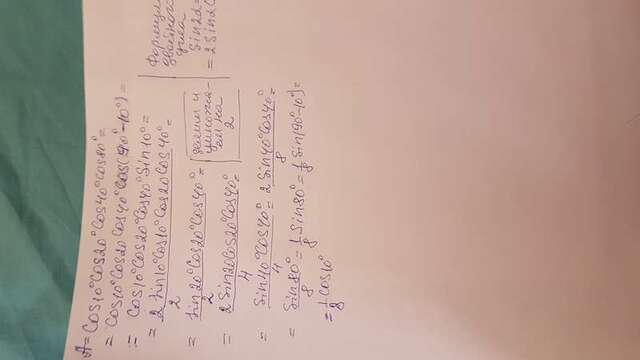 A = cos10°cos20°cos40°cos80° =
= cos10°cos20°cos40°cos(90°-10°) =
= cos10°cos20°cos40°sin10° =
= 2sin10°cos10°cos20°cos40° / 2 =
= sin20°cos20°cos40° / 2 =
= 2sin20cos20°cos40° / 4 =
= sin40°cos40° / 4 = 2sin40°cos40° / 8 =
= sin80° / 8 = 1/8 sin80° = 1/8 sin(90°-10°) =
= 1/8 cos10°
Формула
двойного
угла
sin2α =
= 2sin
и
на
2